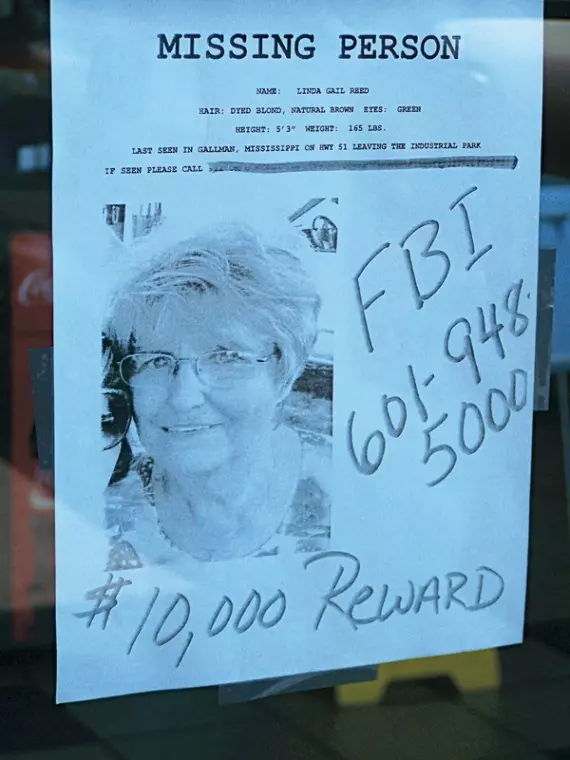 MISSING PERSON
NAME: LINDA GAIL REED
HAIR: DYED BLOND, NATURAL BROWN EYES: GREEN
HEIGHT: 5'3" WEIGHT: 165 LBS.
LAST SEEN IN GALLMAN, MISSISSIPPI ON HWY 51 LEAVING THE INDUSTRIAL PARK
IF SEEN PLEASE CALL
FBI
601-948
5000
$10,000 REWARD